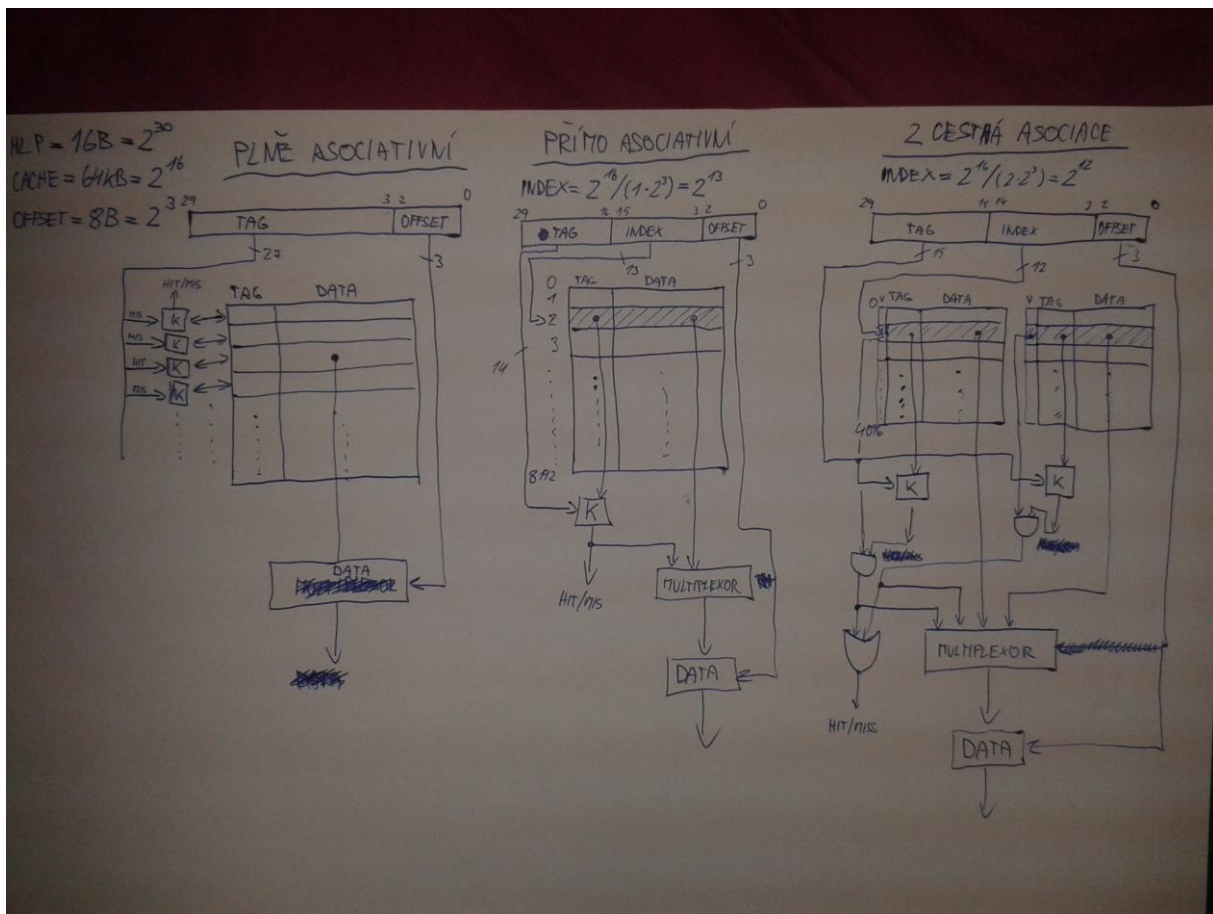 HLP = 1GB = 2^30
CACHE = 64kB = 2^16
OFFSET = 8B = 2^3
PLNĚ ASOCIATIVNÍ
29 3 2 0
TAG OFFSET
27 3
HIT/MIS
TAG DATA
MIS K
MIS K
HIT K
MIS K
DATA
PŘÍMO ASOCIATIVNÍ
INDEX = 2^16/(1·2^3) = 2^13
29 16 15 3 2 0
TAG INDEX OFFSET
13 3
TAG DATA
0
1
2
3
14
8192
K
HIT/MIS
MULTIPLEXOR
DATA
2 CESTNÁ ASOCIACE
INDEX = 2^16/(2·2^3) = 2^12
29 15 14 3 2 0
TAG INDEX OFFSET
15 12 3
0 V TAG DATA V TAG DATA
4096
K K
MULTIPLEXOR
HIT/MISS
DATA